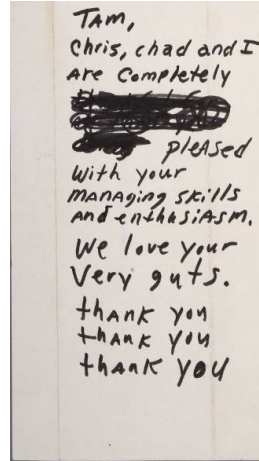 TAM,
Chris, chad and I
Are Completely
pleAsed
With your
mANAging skills
And enthusiAsm.
We love your
Very guts.
thANK you
thANK you
thANK you